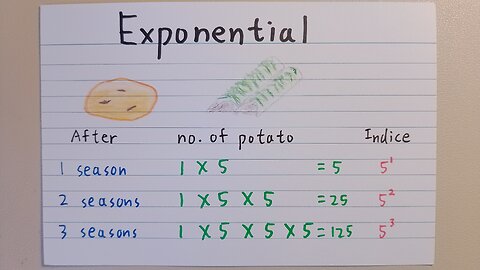 Exponential
After no. of potato Indice
1 season 1 X 5 = 5 5¹
2 seasons 1 X 5 X 5 = 25 5²
3 seasons 1 X 5 X 5 X 5 = 125 5³